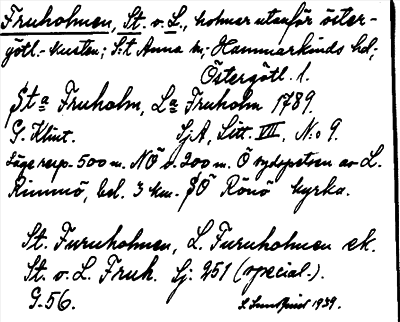 Fruholmen, St. o. L., holmar utanför öster-
götl.-kusten; S:t Anna sn; Hammarkinds hd;
Östergötl. l.
Sta Fruholm, La Fruholm 1789.
G. Klint. SjA, Litt. VII, N:o 9.
Läge resp. 500 m. NÖ o. 200 m. Ö sydspetsen av L.
Rimmö, bel. 3 km. SÖ Rönö kyrka.
St. Furuholmen, L. Furuholmen ek.
St. o. L. Fruh. Sj. 251 (special.).
G. 56. 1939.